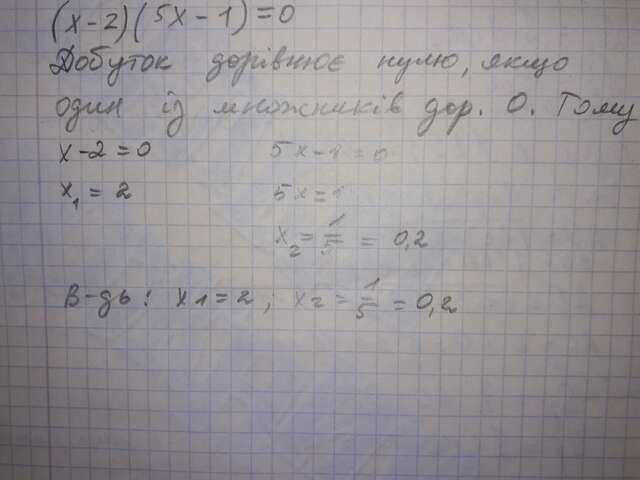 (x-2)(5x-1)=0
Добуток дорівнює нулю, якщо
один із множників дор. 0. Тому
x-2=0 5x-1=0
x₁=2 5x=1
x₂=1/5=0,2
В-дь: x1=2; x2=1/5=0,2